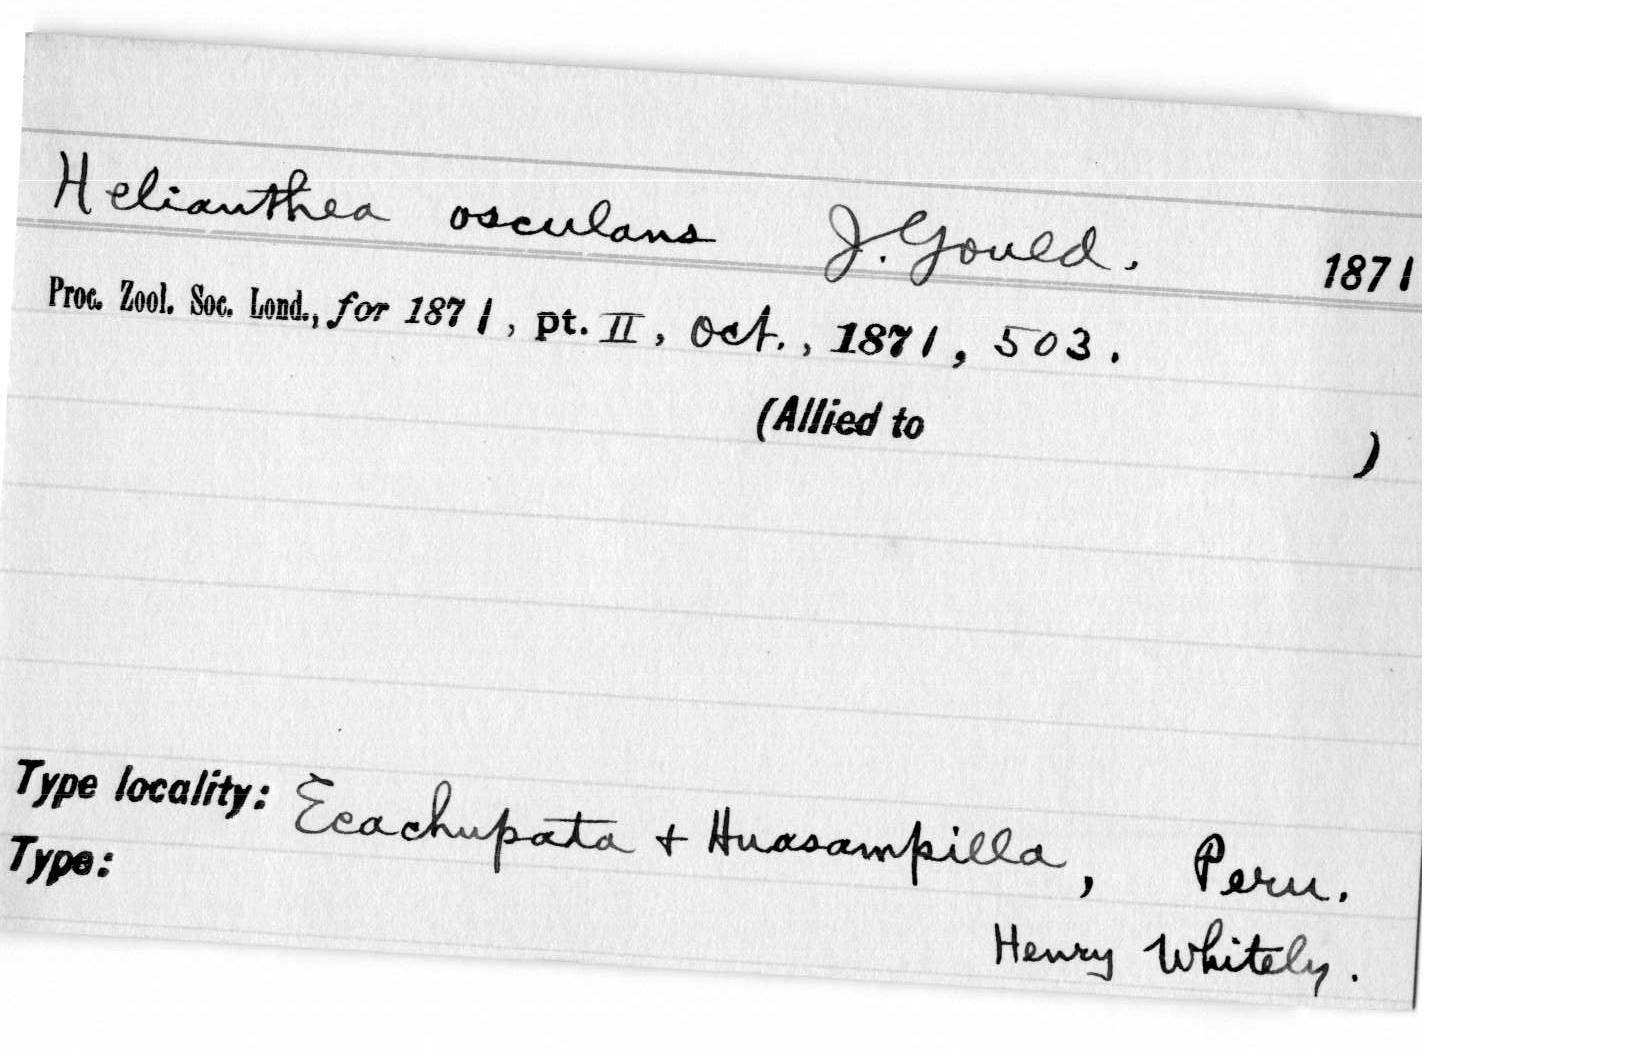 Helianthea osculans J. Gould. 1871
Proc. Zool. Soc. Lond., for 1871, pt. II, Oct., 1871, 503.
(Allied to )
Type locality: Ecachupata + Huasampilla, Peru.
Type:
Henry Whitely.